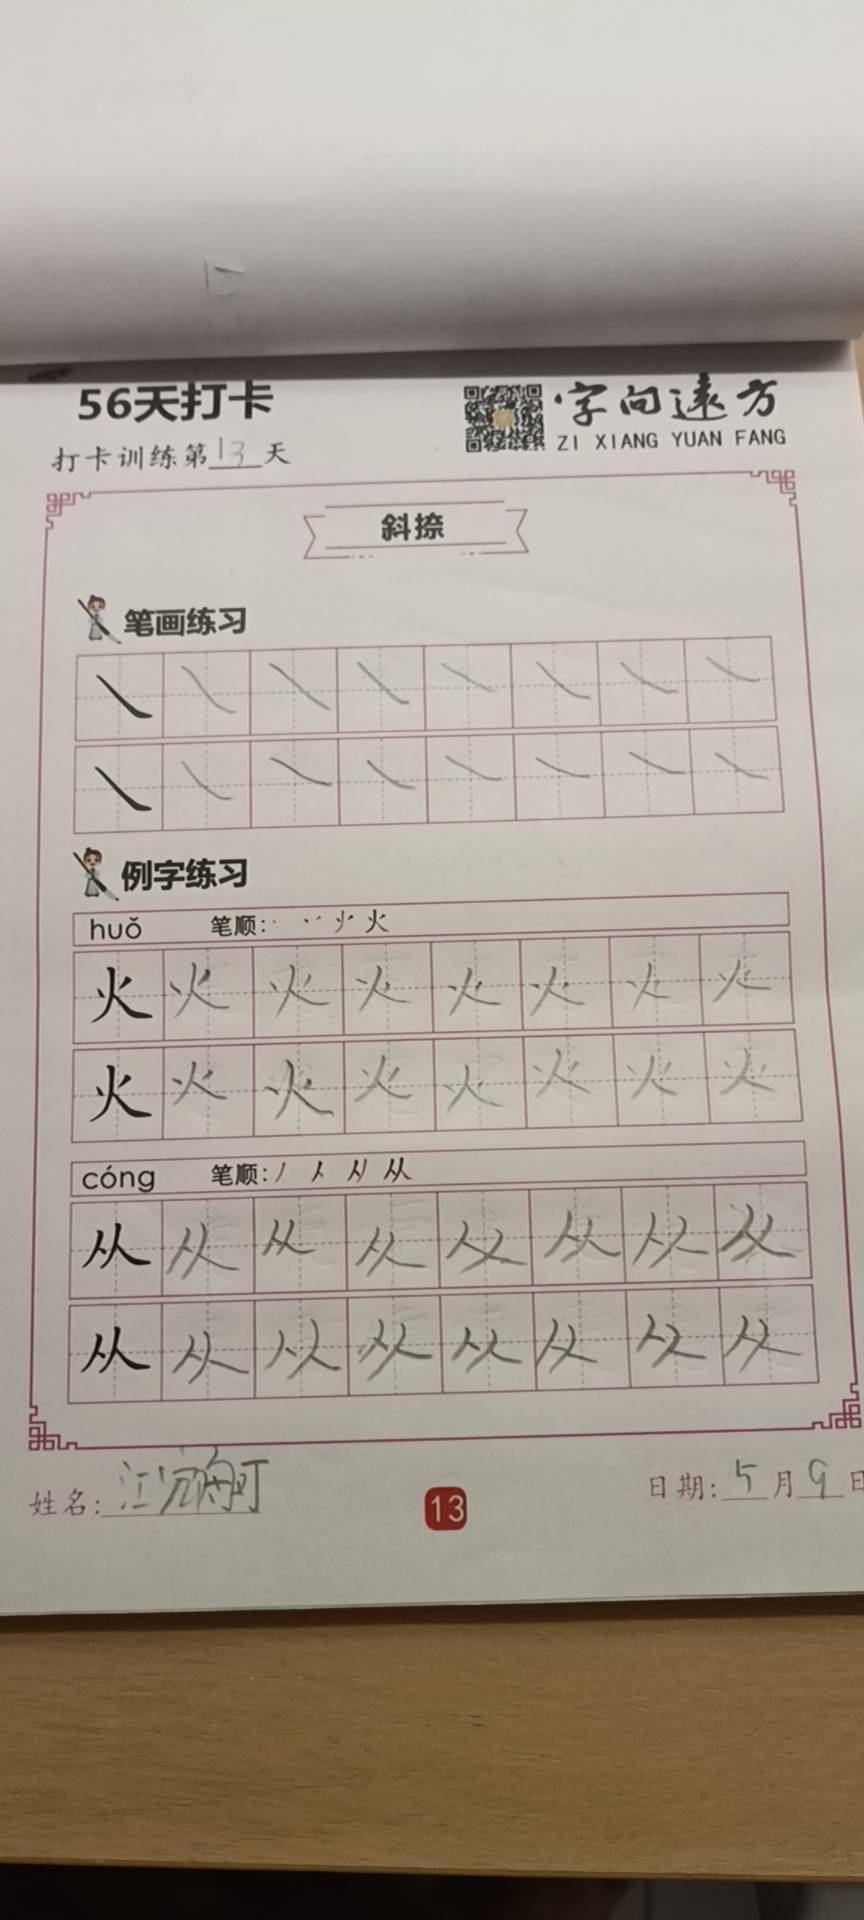 56天打卡
字向远方
ZI XIANG YUAN FANG
打卡训练第13天
斜捺
笔画练习
例字练习
huǒ 笔顺: 火
火 火 火 火 火 火 火 火
火 火 火 火 火 火 火 火
cóng 笔顺: 丿 从
从 从 从 从 从 从 从 从
从 从 从 从 从 从 从 从
姓名: 江
13
日期: 5月9日